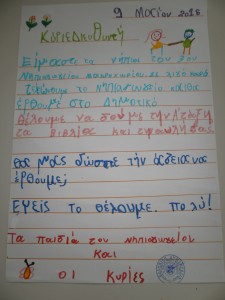 9 Μαΐου 2018
Κύριε Διηυθυντή
Είμαστε τα νήπια του 2ου
Νηπιαγωγείου
τελειώνουμε το Νηπιαγωγείο και θα
έρθουμε στο Δημοτικό
Θέλουμε να δούμε την τάξη
τα βιβλία και
Θα μας δώσετε την άδεια να
έρθουμε;
Εμείς το θέλουμε πολύ!
Τα παιδιά του νηπιαγωγείου
και
οι κυρίες